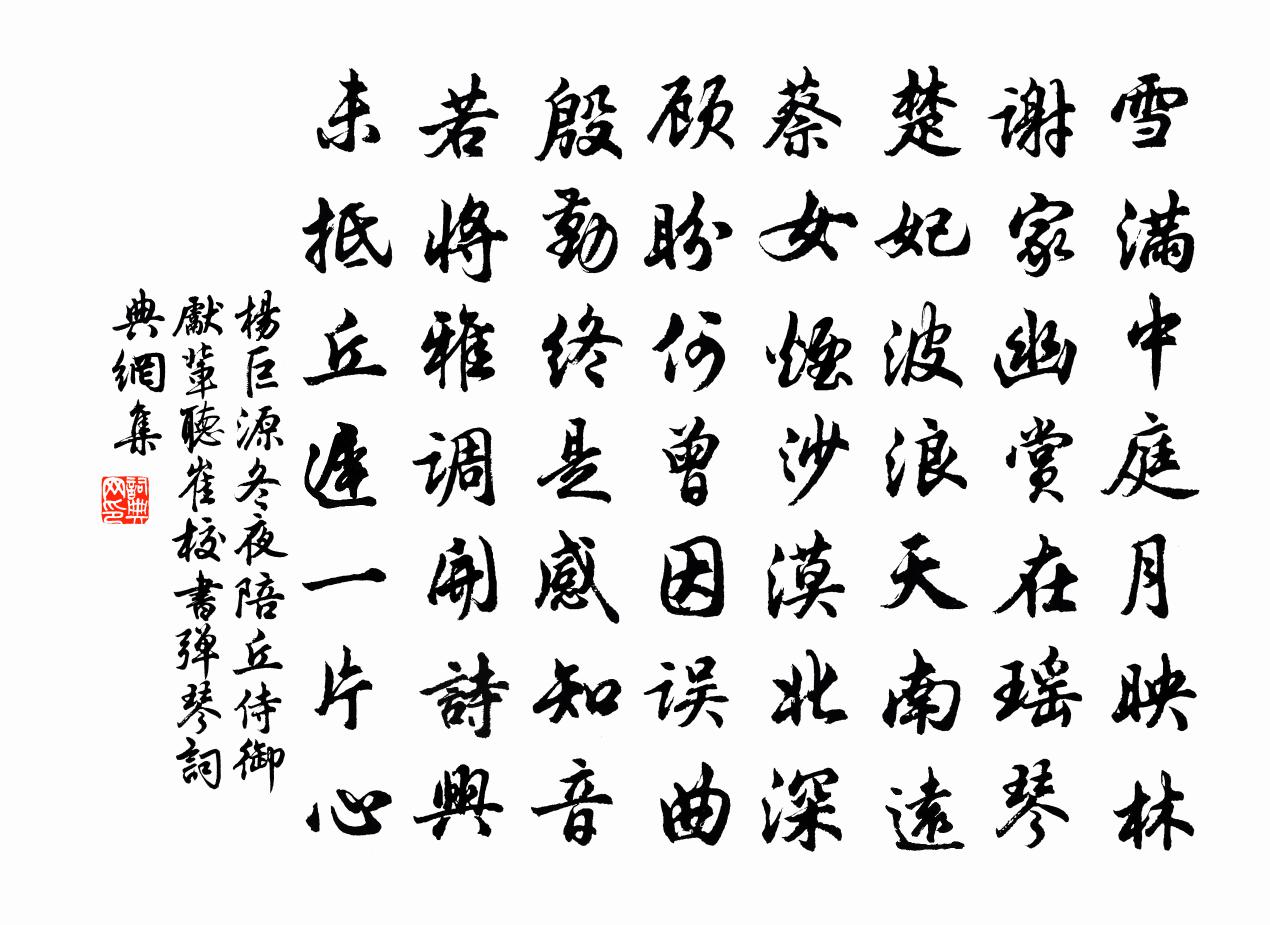 雪满中庭月映林
谢家幽赏在瑶琴
楚妃波浪天南远
蔡女烟沙漠北深
顾盼何曾因误曲
殷勤终是感知音
若将雅调開詩興
未抵丘遲一片心
楊巨源冬夜陪丘侍御
獻輩聽崔校書弹琴詞
典網集
詞典网印